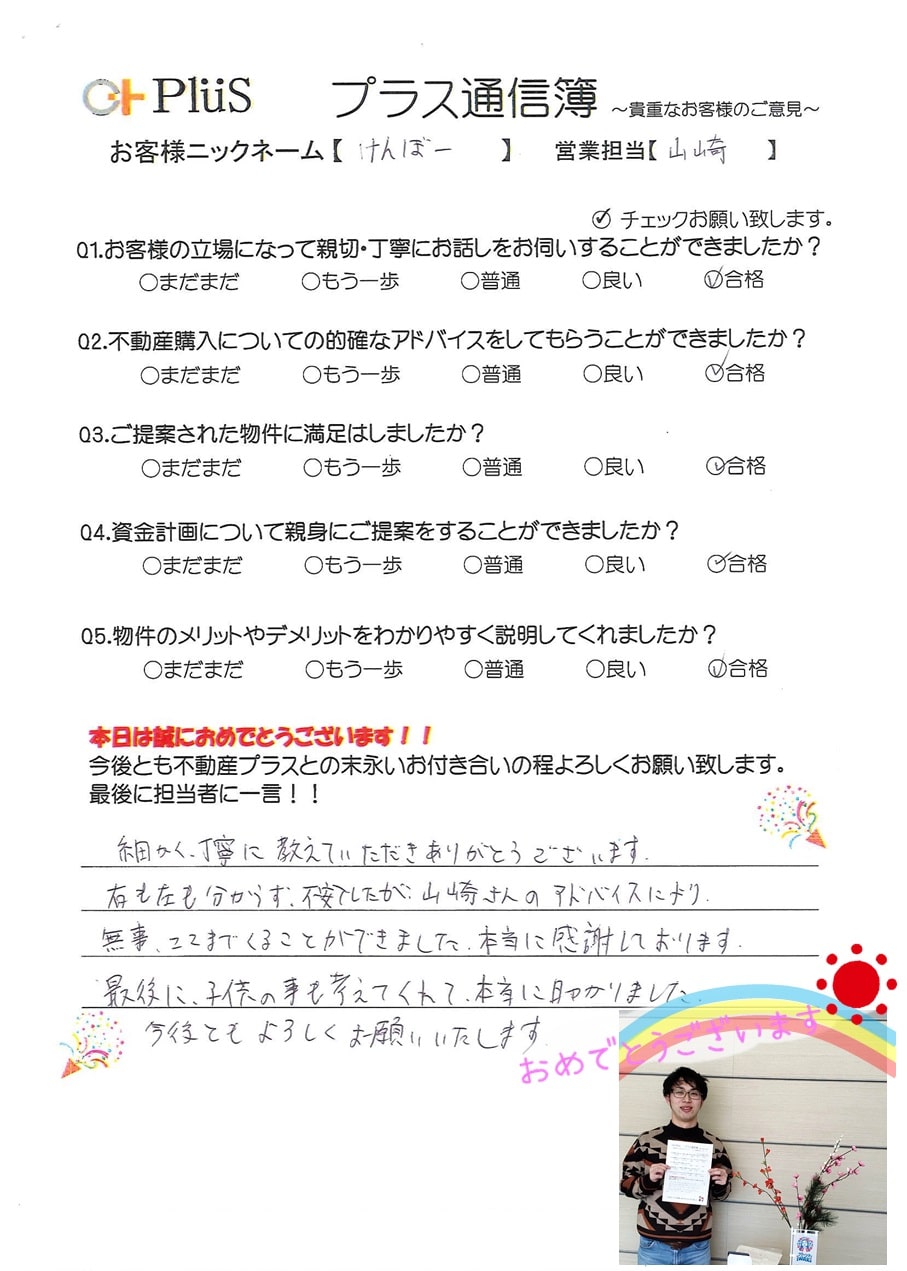 PlüS プラス通信簿 ～貴重なお客様のご意見～
お客様ニックネーム【 けんぼー 】 営業担当【 山崎 】
チェックお願い致します。
Q1.お客様の立場になって親切・丁寧にお話しをお伺いすることができましたか？
○まだまだ ○もう一歩 ○普通 ○良い ○合格
Q2.不動産購入についての的確なアドバイスをしてもらうことができましたか？
○まだまだ ○もう一歩 ○普通 ○良い ○合格
Q3.ご提案された物件に満足はしましたか？
○まだまだ ○もう一歩 ○普通 ○良い ○合格
Q4.資金計画について親身にご提案をすることができましたか？
○まだまだ ○もう一歩 ○普通 ○良い ○合格
Q5.物件のメリットやデメリットをわかりやすく説明してくれましたか？
○まだまだ ○もう一歩 ○普通 ○良い ○合格
本日は誠におめでとうございます！！
今後とも不動産プラスとの末永いお付き合いの程よろしくお願い致します。
最後に担当者に一言！！
細かく、丁寧に教えていただきありがとうございます。
右も左も分からず、不安でしたが、山崎さんのアドバイスにより、
無事、ココまでくることができました。本当に感謝しております。
最後に、子供の事も考えてくれて、本当に助かりました。
今後ともよろしくお願いいたします。
おめでとうございます